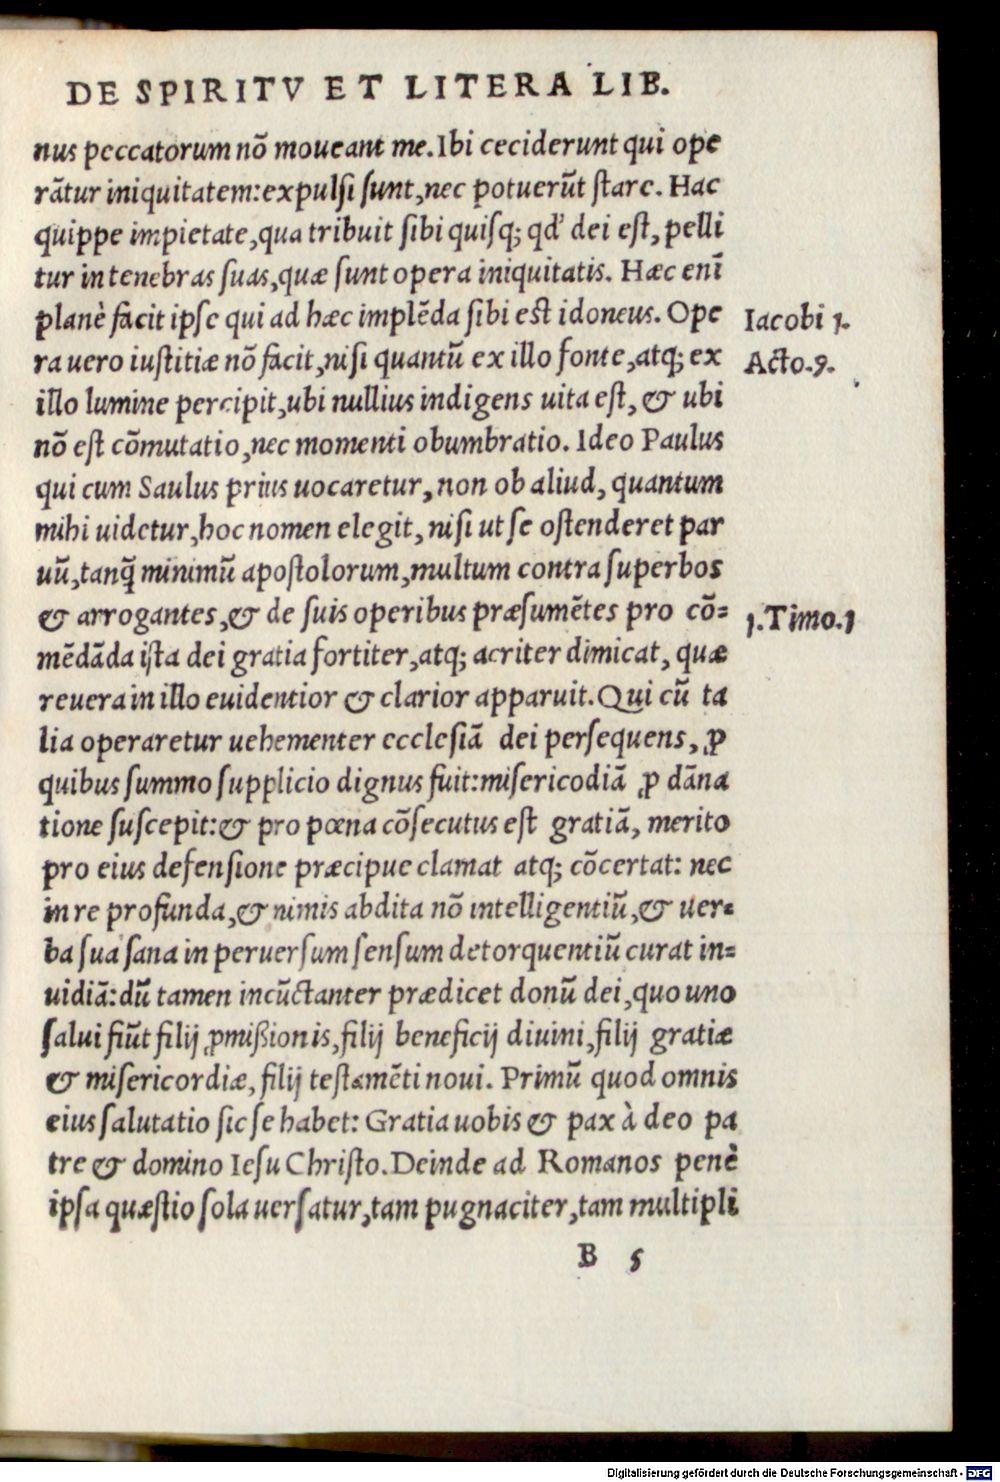 DE SPIRITV ET LITERA LIB.
nus peccatorum nõ moueant me. Ibi ceciderunt qui ope
rãtur iniquitatem: expulſi ſunt, nec potuerũt ſtare. Hac
quippe impietate, qua tribuit ſibi quiſq; qd' dei eſt, pelli
tur in tenebras ſuas, quæ ſunt opera iniquitatis. Hæc enĩ
planè facit ipſe qui ad hæc implẽda ſibi eſt idoneus. Ope
ra uero iuſtitiæ nõ facit, niſi quantũ ex illo fonte, atq; ex
illo lumine percipit, ubi nullius indigens uita eſt, & ubi
nõ eſt cõmutatio, nec momenti obumbratio. Ideo Paulus
qui cum Saulus prius uocaretur, non ob aliud, quantum
mihi uidetur, hoc nomen elegit, niſi ut ſe oſtenderet par
uũ, tanq̃ minimũ apoſtolorum, multum contra ſuperbos
& arrogantes, & de ſuis operibus præſumẽtes pro cõ=
mẽdãda iſta dei gratia fortiter, atq; acriter dimicat, quæ
reuera in illo euidentior & clarior apparuit. Qui cũ ta
lia operaretur uehementer eccleſiã dei perſequens, ꝓ
quibus ſummo ſupplicio dignus fuit: miſericodiã ꝓ dãna
tione ſuſcepit: & pro pœna cõſecutus eſt gratiã, merito
pro eius defenſione præcipue clamat atq; cõcertat: nec
in re profunda, & nimis abdita nõ intelligentiũ, & uer=
ba ſua ſana in peruerſum ſenſum detorquentiũ curat in=
uidiã: dũ tamen incũctanter prædicet donũ dei, quo uno
ſalui fiũt filij ꝓmißionis, filij beneficij diuini, filij gratiæ
& miſericordiæ, filij teſtamẽti noui. Primũ quod omnis
eius ſalutatio ſic ſe habet: Gratia uobis & pax à deo pa
tre & domino Ieſu Chriſto. Deinde ad Romanos penè
ipſa quæſtio ſola uerſatur, tam pugnaciter, tam multipli
B 5
Iacobi 1.
Acto. 9.
1. Timo. 1
Digitalisierung gefördert durch die Deutsche Forschungsgemeinschaft - DFG